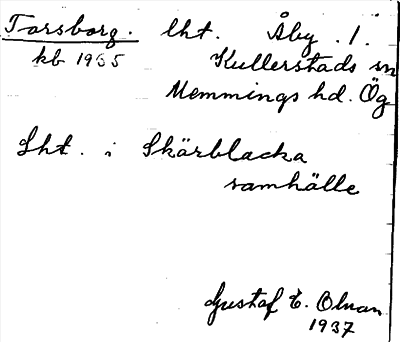 Torsborg. lht. Åby. 1.
kb 1935 Kullerstads sn
Memmings hd. Ög
Lht. i Skärblacka
samhälle
Gustaf E.
1937